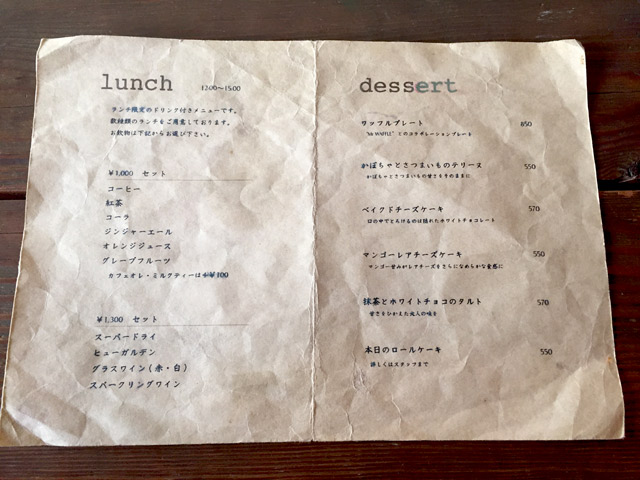 lunch 12:00～15:00
ランチ限定のドリンク付きメニューです。
数種類のランチをご用意しております。
お飲物は下記からお選び下さい。
￥1,000 セット
コーヒー
紅茶
コーラ
ジンジャーエール
オレンジジュース
グレープフルーツ
カフェオレ・ミルクティーは＋￥100
￥1,300 セット
スーパードライ
ヒューガルデン
グラスワイン（赤・白）
スパークリングワイン
dessert
ワッフルプレート 850
"Mr WAFFLE" とのコラボレーションプレート
かぼちゃとさつまいものテリーヌ 550
かぼちゃとさつまいもの甘さをそのままに
ベイクドチーズケーキ 570
口の中でとろけるのは隠れたホワイトチョコレート
マンゴーレアチーズケーキ 550
マンゴー甘みがレアチーズをさらになめらかな食感に
抹茶とホワイトチョコのタルト 570
甘さをひかえた大人の味を
本日のロールケーキ 550
詳しくはスタッフまで